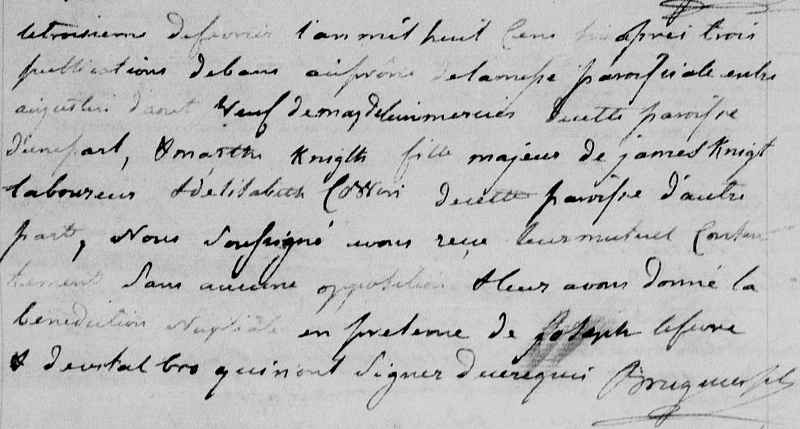 letroisieme defevrier l'an mil huit Cens après trois
publications debans auprône delamesse paroissiale entre
augustin d'aout Veuf demagdeleinmercier decette paroisse
d'unepart, & marthe Knigth fille majeur de james Knigt
laboureur & d'elisabeth decette paroisse d'autre
part, Nous Sousigné avons reçu leurmutuel Consen
tement Sans aucune opposition & leur avons donné la
benediction Nuptiale en presence de Joseph lefevre
& de qui n'ont Signer decerequis